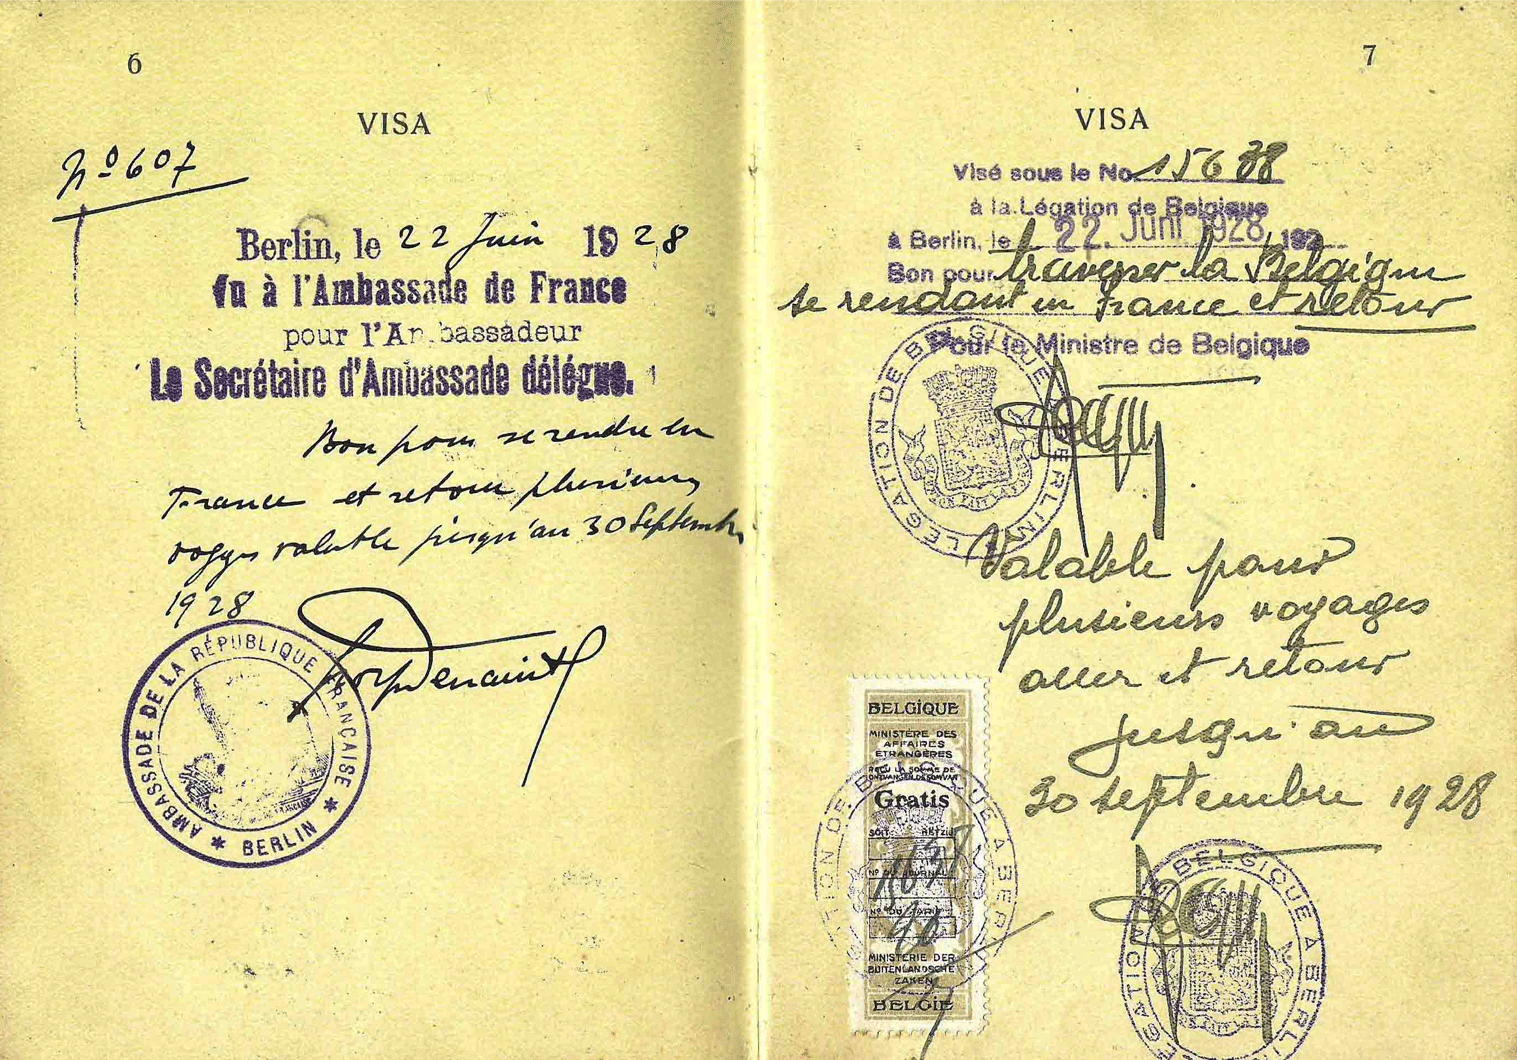 6
VISA
Nº 607
Berlin, le 22 Juin 1928
Vu à l'Ambassade de France
pour l'Ambassadeur
Le Secrétaire d'Ambassade délégué.
Bon pour se rendre en
France et retour plusieurs
voyages valable jusqu'au 30 Septembre
1928
AMBASSADE DE LA RÉPUBLIQUE FRANÇAISE * BERLIN *
7
VISA
Visé sous le No 15638
à la Légation de Belgique
à Berlin, le 22. Juni 1928 192
Bon pour traverser la Belgique
se rendant en France et retour
Pour le Ministre de Belgique
LÉGATION DE BELGIQUE À BERLIN
Valable pour
plusieurs voyages
aller et retour
jusqu'au
30 septembre 1928
BELGIQUE
MINISTÈRE DES
AFFAIRES
ÉTRANGÈRES
REÇU LA SOMME DE
ONTVANGEN DE SOM VAN
Gratis
SOIT
Nº DU JOURNAL
Nº DU TARIF
MINISTERIE DER
BUITENLANDSCHE
ZAKEN
BELGIË
LÉGATION DE BELGIQUE À BERLIN
LÉGATION DE BELGIQUE À BERLIN